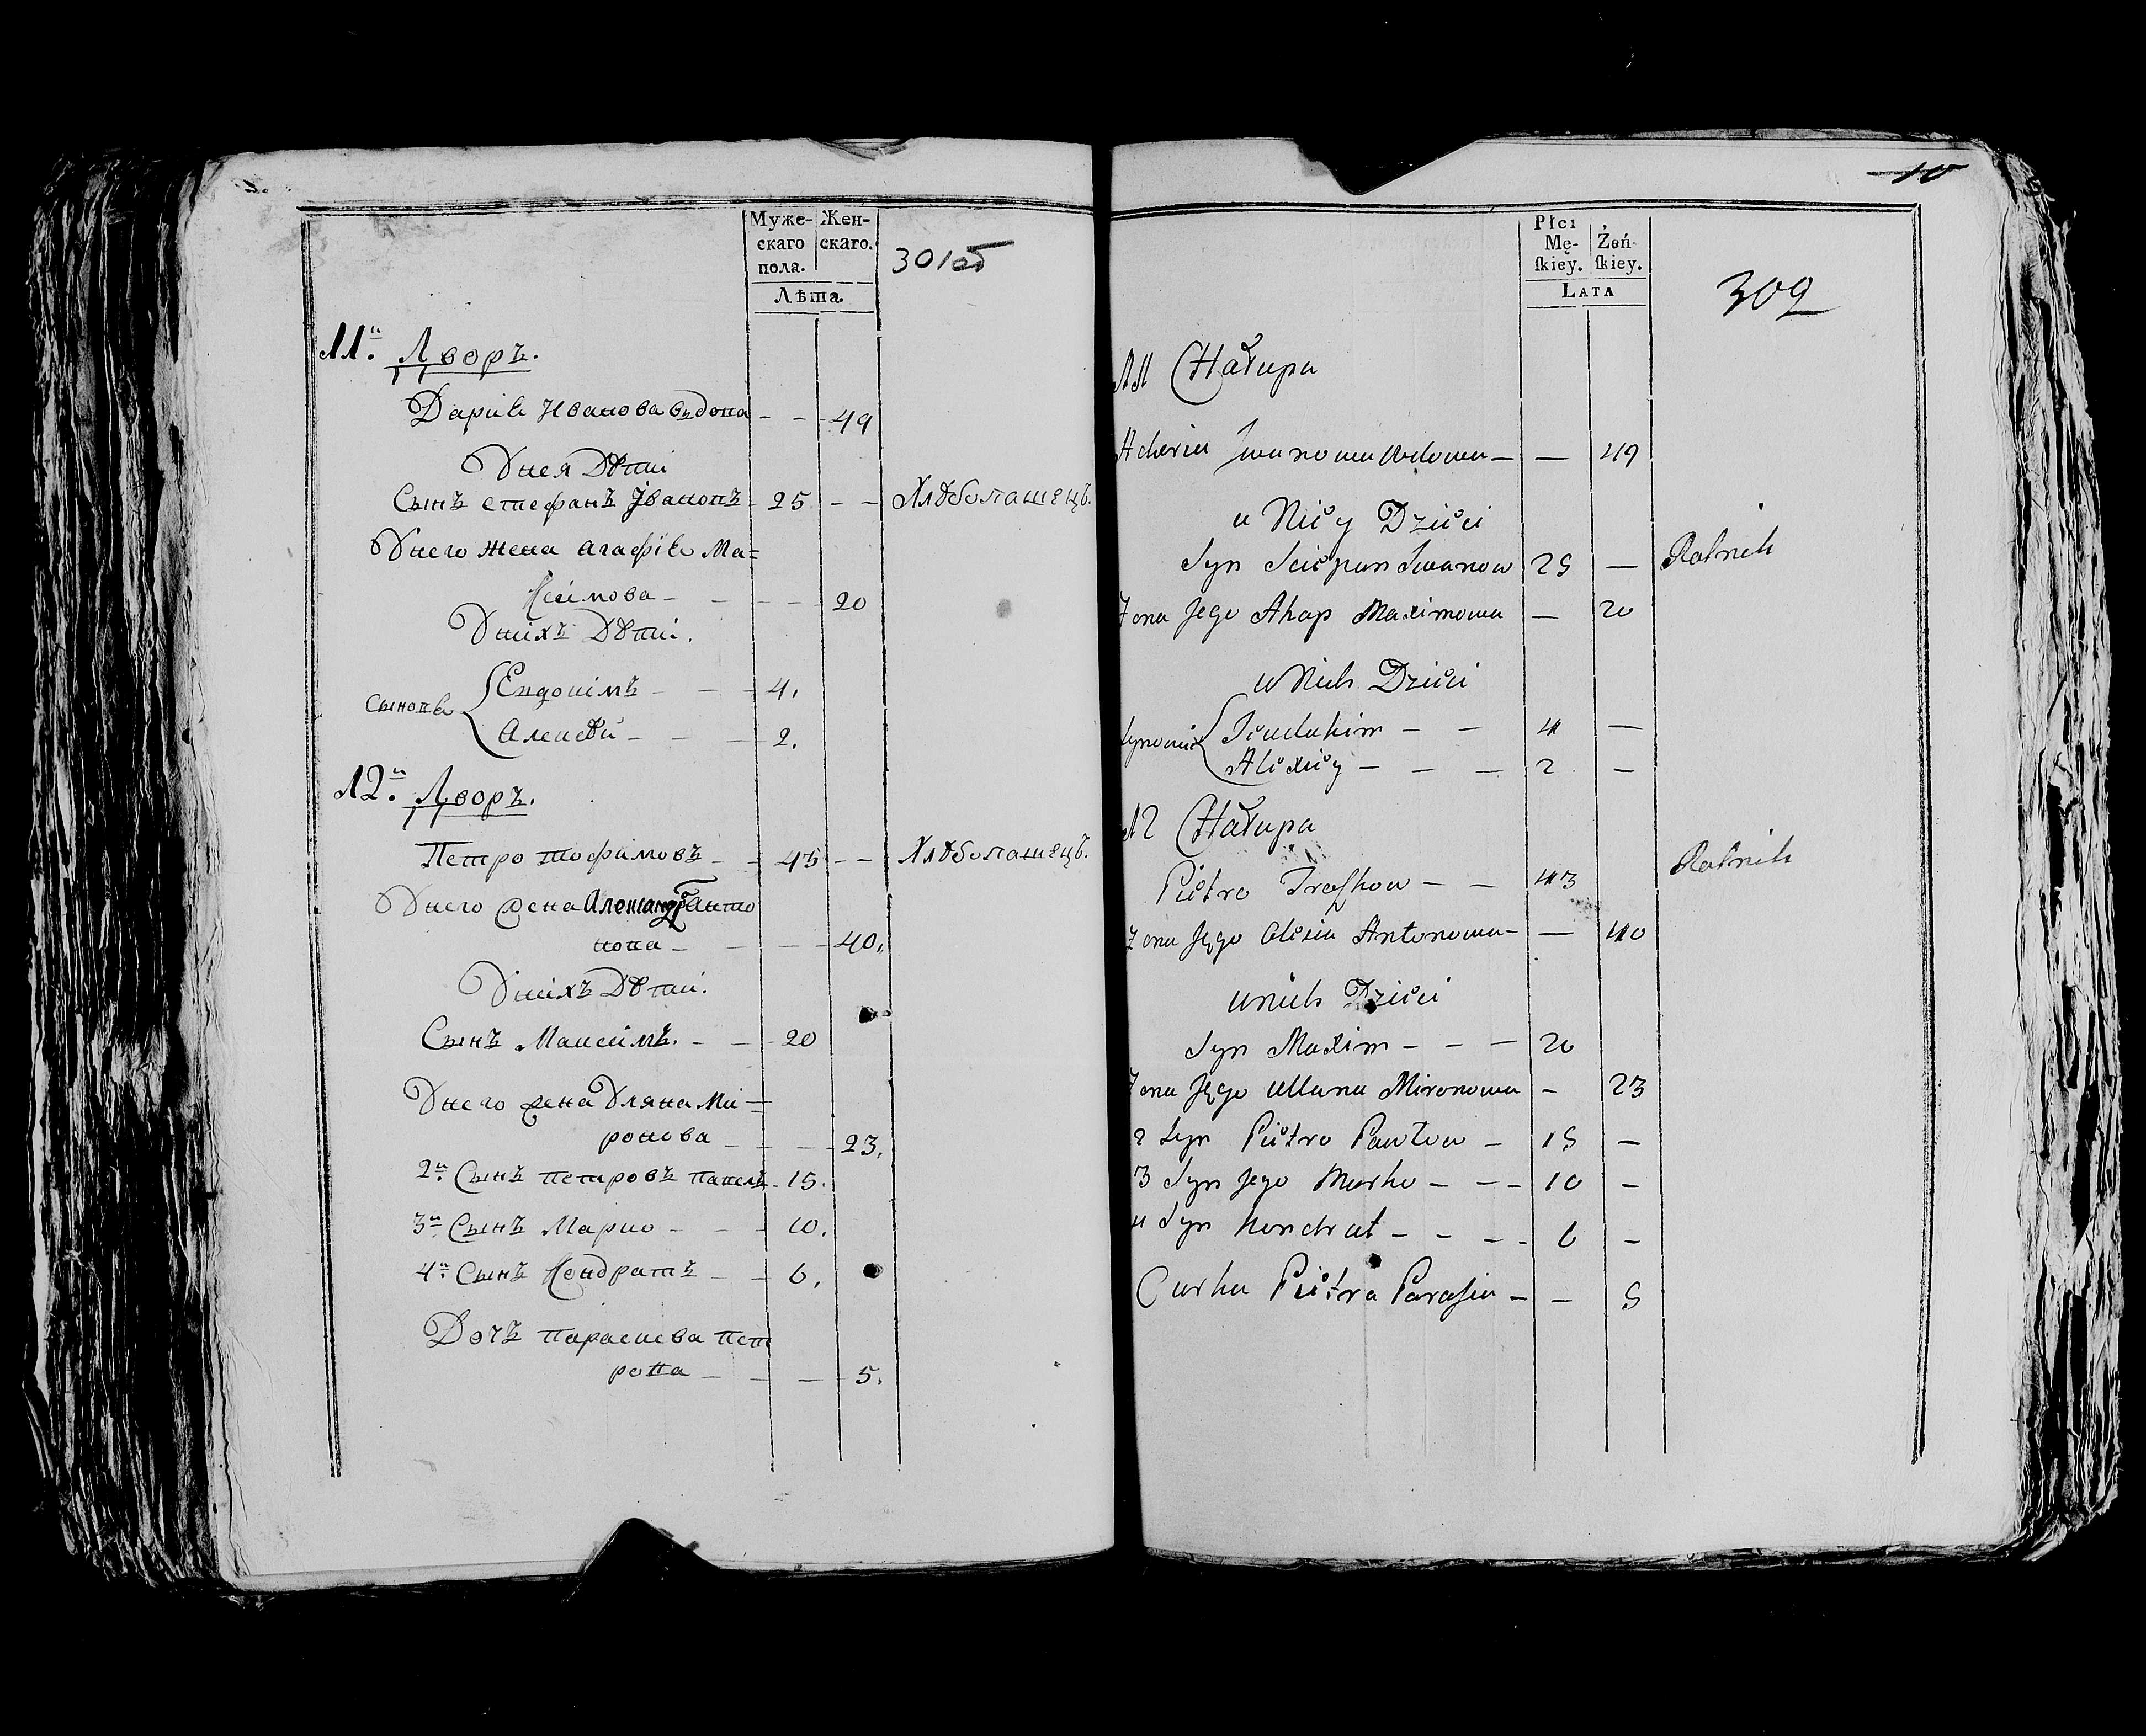 Муже-
скаго
пола.
Жен-
скаго.
Лѣта.
301об
11й. Дворъ.
Дарія Иванова вдова - - 49
У нея Дѣти
Сынъ Стефанъ Івановъ - 25 - - Хлѣбопашецъ.
У него жена Агафія Ма=
ксимова - - - - 20
У нихъ Дѣти.
Сыновя
Евдокімъ - - - 4.
Алексѣй - - - 2.
12й. Дворъ.
Петро Тофимовъ - - 43 - - Хлѣбопашецъ.
У него жена Александра Анто
нова - - - - 40.
У нихъ Дѣти.
Сынъ Максімъ. - - - 20
У него жена Уляна Ми=
ронова - - - 23.
2й. Сынъ Петровъ Павелъ - 15.
3й Сынъ Марко - - - 10.
4й. Сынъ Кондратъ - - 6.
Дочъ Параскева Пет
рова - - - 5.
10
Płci
Mę-
ſkiey.
Żeń-
ſkiey.
LATA
309
11 Chałupa
Iwanowa Wdowa — — 49
u Niey Dzieci
Syn Sciepan Iwanow 25 — Rolnik
Zona Jego Ahap Maximowa — 20
u Nich Dzieci
Synowie
Ieudakim — — 4 —
Alexiey — — — 2 —
12 Chałupa
Piotro Trofkow — — 43 Rolnik
Zona Jego Olesia Antonowa — — 40
u nich Dzieci
Syn Maxim — — — 20
Zona Jego Ullana Mironowa - 23
2 Syn Piotro Pawłow — 15 —
3 Syn Jego Marko — — — 10 —
4 Syn Kondrat — — — — 6 —
Curka Piotra Parasia — — 5